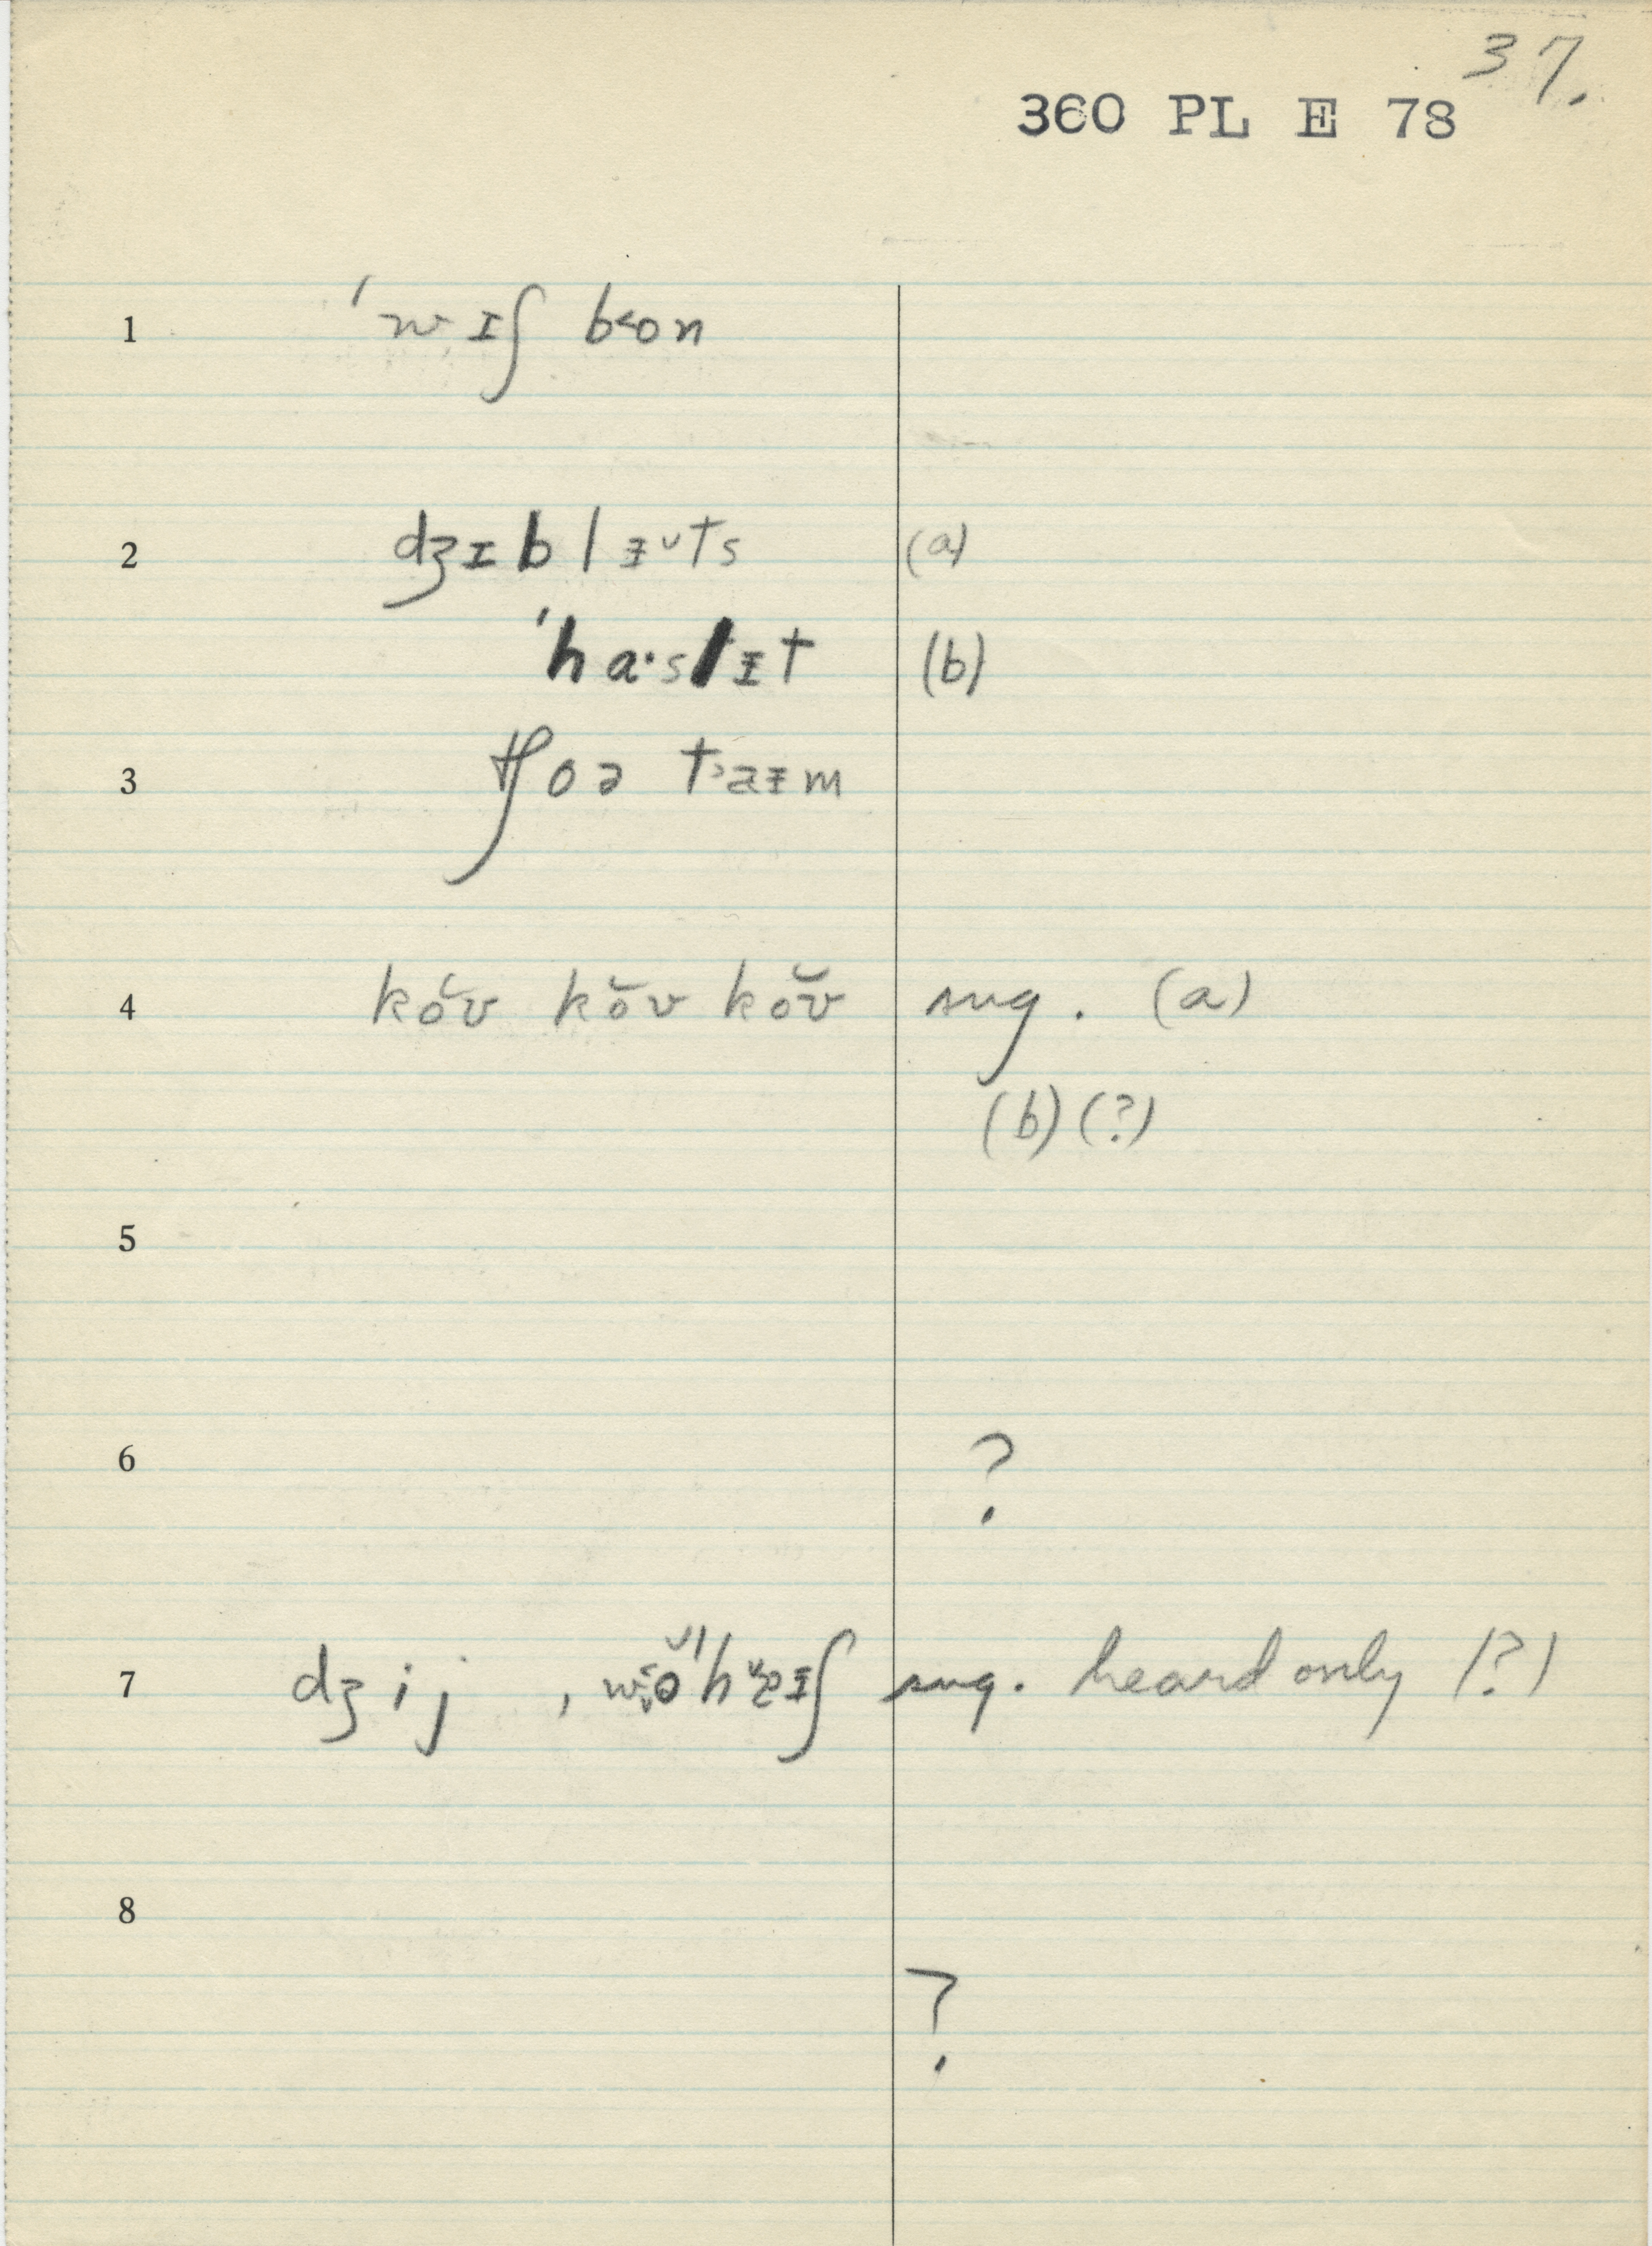 37.
360 PL E 78
1 ˈwɪʃ b˂on
2 dʒɪblᵻ̆ts (a)
ˈha·slᵻt (b)
3 tʃoə t˃aᵻm
4 kŏʊ kŏʊ kŏʊ sug. (a)
(b) (?)
5
6 ?
7 dʒij, sug. heard only (?)
8
?